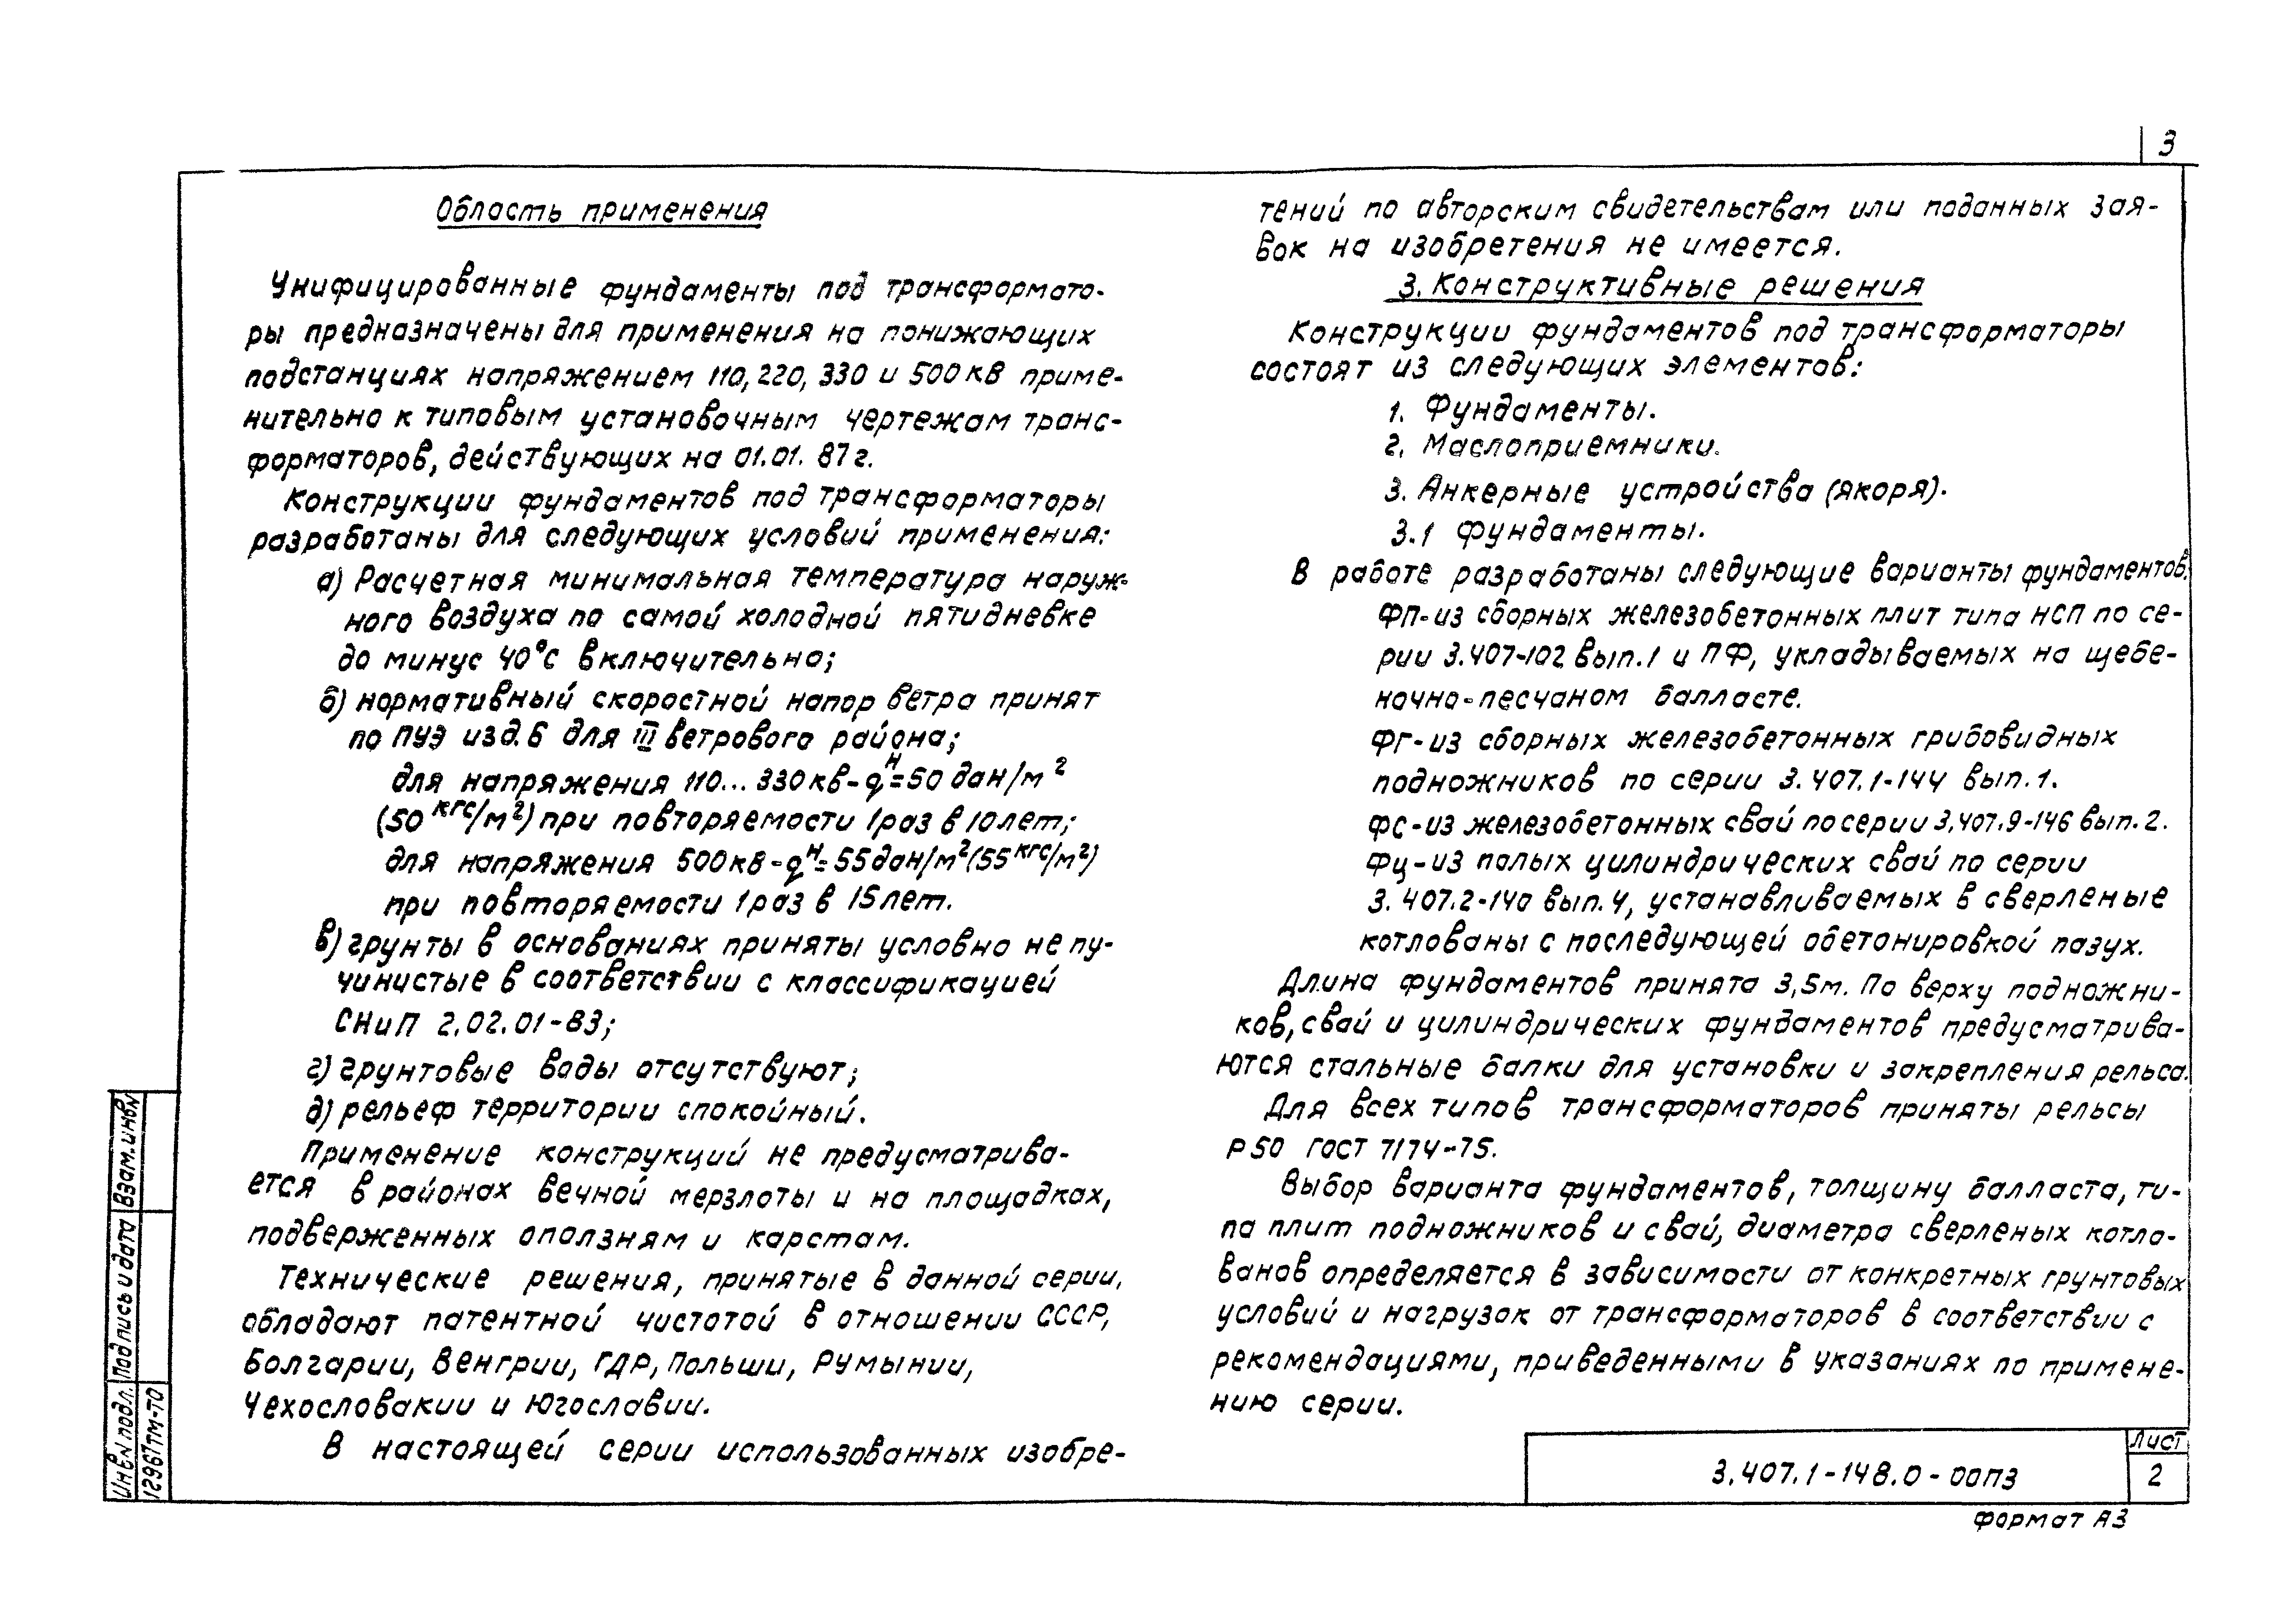 3
Область применения
Унифицированные фундаменты под трансформато-
ры предназначены для применения на понижающих
подстанциях напряжением 110, 220, 330 и 500 кВ приме-
нительно к типовым установочным чертежам транс-
форматоров, действующих на 01.01. 87 г.
Конструкции фундаментов под трансформаторы
разработаны для следующих условий применения:
а) Расчетная минимальная температура наруж-
ного воздуха по самой холодной пятидневке
до минус 40°С включительно;
б) нормативный скоростной напор ветра принят
по ПУЭ изд. 6 для III ветрового района;
для напряжения 110... 330 кв - qᴴ = 50 дан/м²
(50 кгс/м²) при повторяемости 1 раз в 10 лет;
для напряжения 500 кв - qᴴ = 55 дан/м² (55 кгс/м²)
при повторяемости 1 раз в 15 лет.
в) грунты в основаниях приняты условно не пу-
чинистые в соответствии с классификацией
СНиП 2.02.01-83;
г) грунтовые воды отсутствуют;
д) рельеф территории спокойный.
Применение конструкций не предусматрива-
ется в районах вечной мерзлоты и на площадках,
подверженных оползням и карстам.
Технические решения, принятые в данной серии,
обладают патентной чистотой в отношении СССР,
Болгарии, Венгрии, ГДР, Польши, Румынии,
Чехословакии и Югославии.
В настоящей серии использованных изобре-
тений по авторским свидетельствам или поданных зая-
вок на изобретения не имеется.
3. Конструктивные решения
Конструкции фундаментов под трансформаторы
состоят из следующих элементов:
1. Фундаменты.
2. Маслоприемники.
3. Анкерные устройства (якоря).
3.1 Фундаменты.
В работе разработаны следующие варианты фундаментов:
ФП-из сборных железобетонных плит типа НСП по се-
рии 3.407-102 вып. 1 и ПФ, укладываемых на щебе-
ночно-песчаном балласте.
ФГ-из сборных железобетонных грибовидных
подножников по серии 3.407.1-144 вып. 1.
ФС-из железобетонных свай по серии 3.407.9-146 вып. 2.
ФЦ-из полых цилиндрических свай по серии
3.407.2-140 вып. 4, устанавливаемых в сверленые
котлованы с последующей обетонировкой пазух.
Длина фундаментов принята 3,5м. По верху подножни-
ков, свай и цилиндрических фундаментов предусматрива-
ются стальные балки для установки и закрепления рельса.
Для всех типов трансформаторов приняты рельсы
Р50 ГОСТ 7174-75.
Выбор варианта фундаментов, толщину балласта, ти-
па плит подножников и свай, диаметра сверленых котло-
ванов определяется в зависимости от конкретных грунтовых
условий и нагрузок от трансформаторов в соответствии с
рекомендациями, приведенными в указаниях по примене-
нию серии.
Взам. инв N
Подпись и дата
Инв. N подл.
12967тм-т0
3.407.1-148.0-00ПЗ
Лист
2
Формат А3